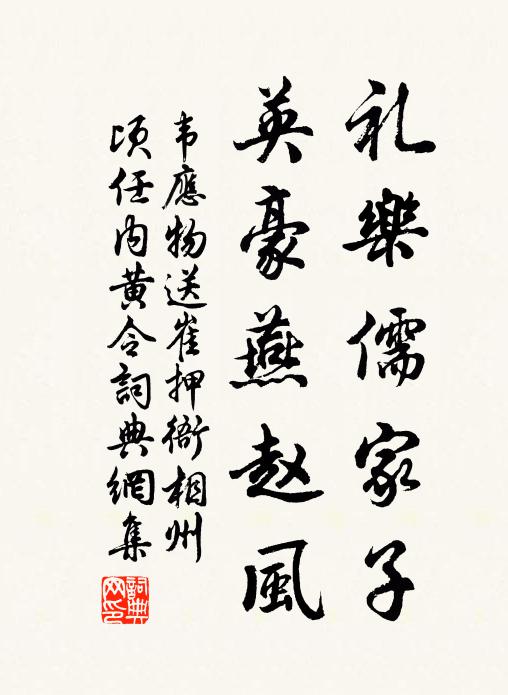 礼樂儒家子
英豪燕赵風
韦應物送崔押衙相州
頃任内黄令詞典網集
詞典网印